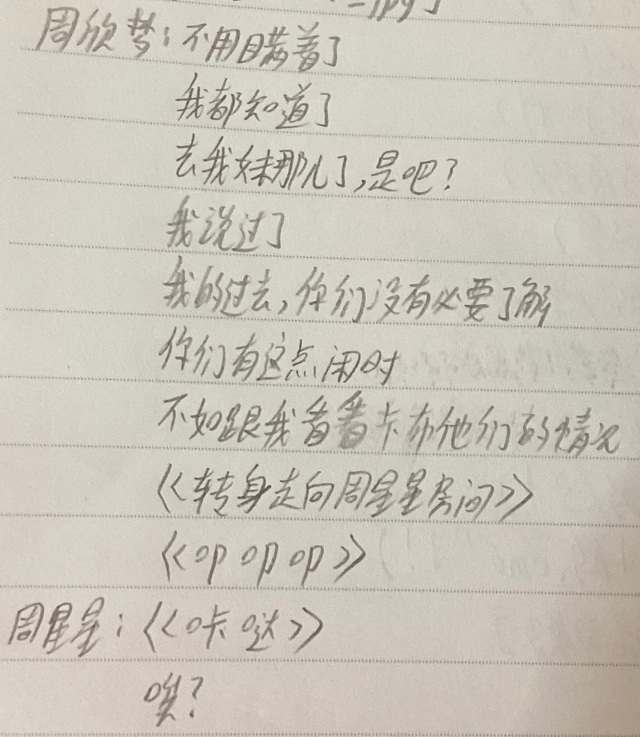 周欣梦：不用瞒着了
我都知道了
去我妹那儿了，是吧？
我说过了
我的过去，你们没有必要了解
你们有这点闲时
不如跟我看看卡布他们的情况
《《转身走向周星星房间》》
《《叩叩叩》》
周星星：《《咔哒》》
唉？